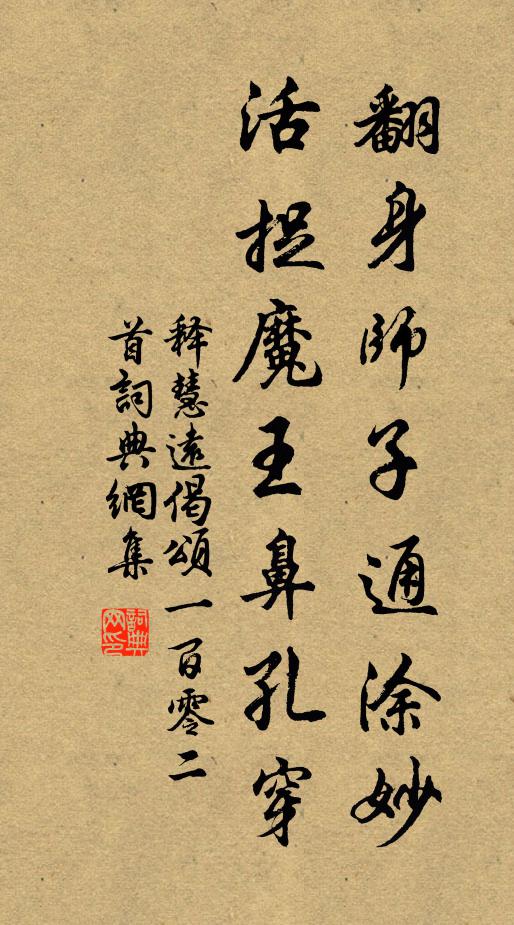 翻身師子通涂妙
活捉魔王鼻孔穿
释慧遠偈頌一百零二
首詞典網集
詞典
网印